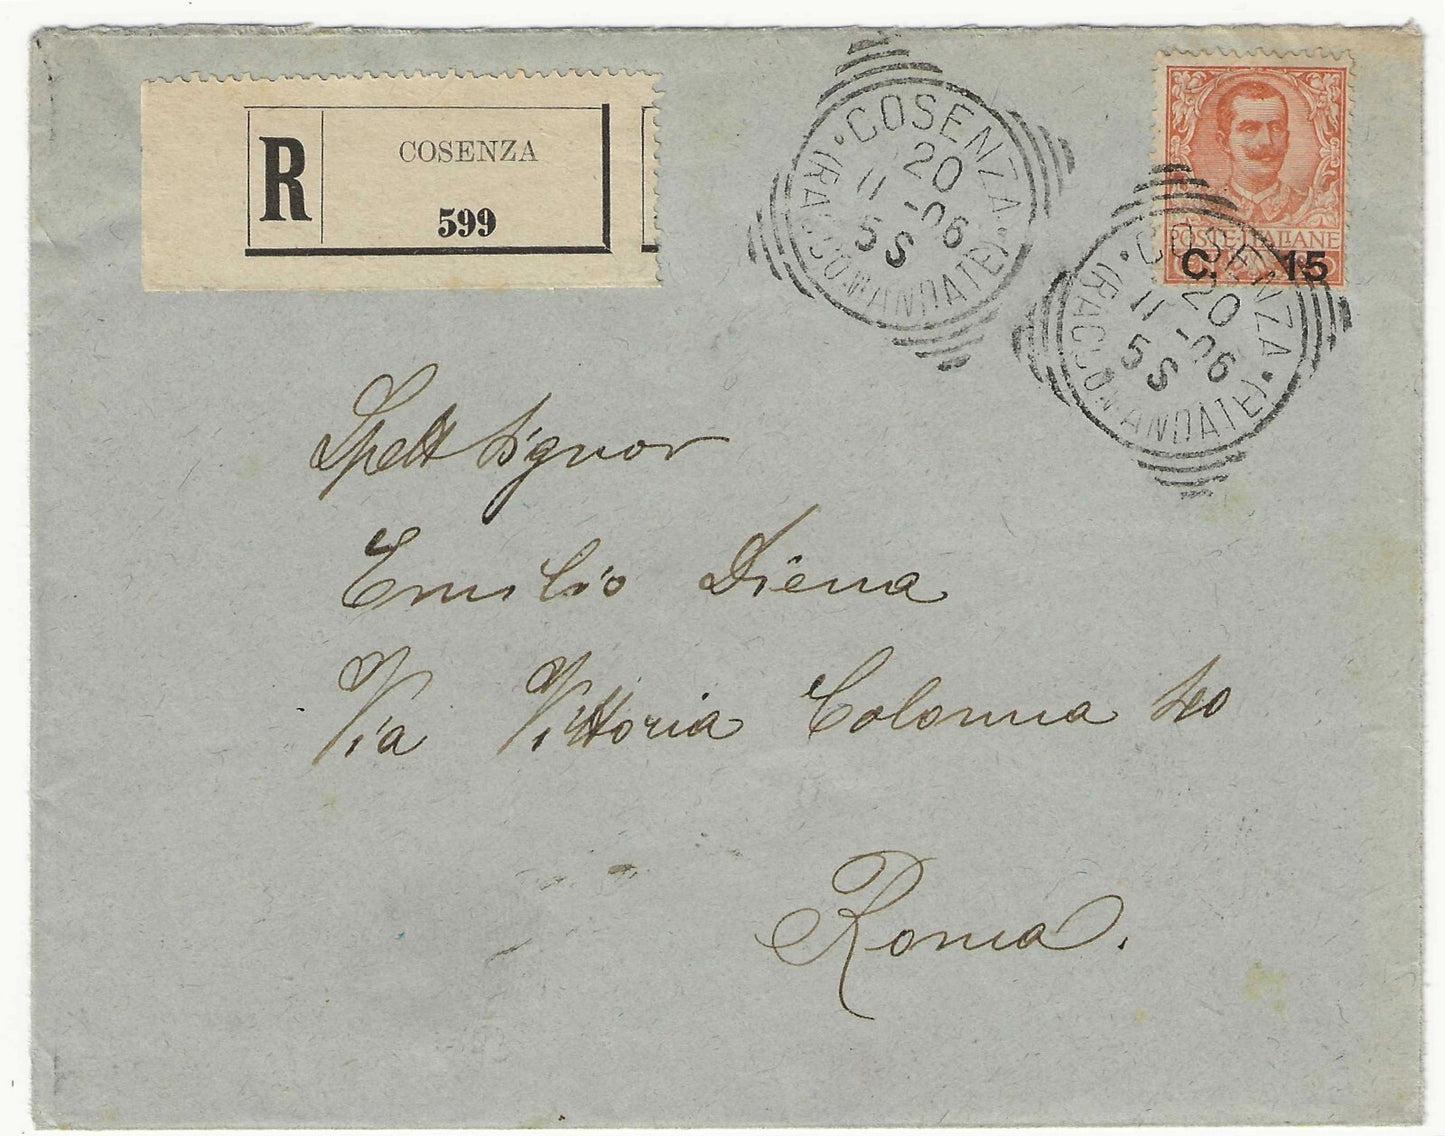 R
COSENZA
599
COSENZA
20
11 -06
5S
(RACCOMANDATE)
POSTE ITALIANE
C. 15
COSENZA
20
11 -06
5S
(RACCOMANDATE)
Spett Signor
Emilio Diena
Via Vittoria Colonna
Roma.